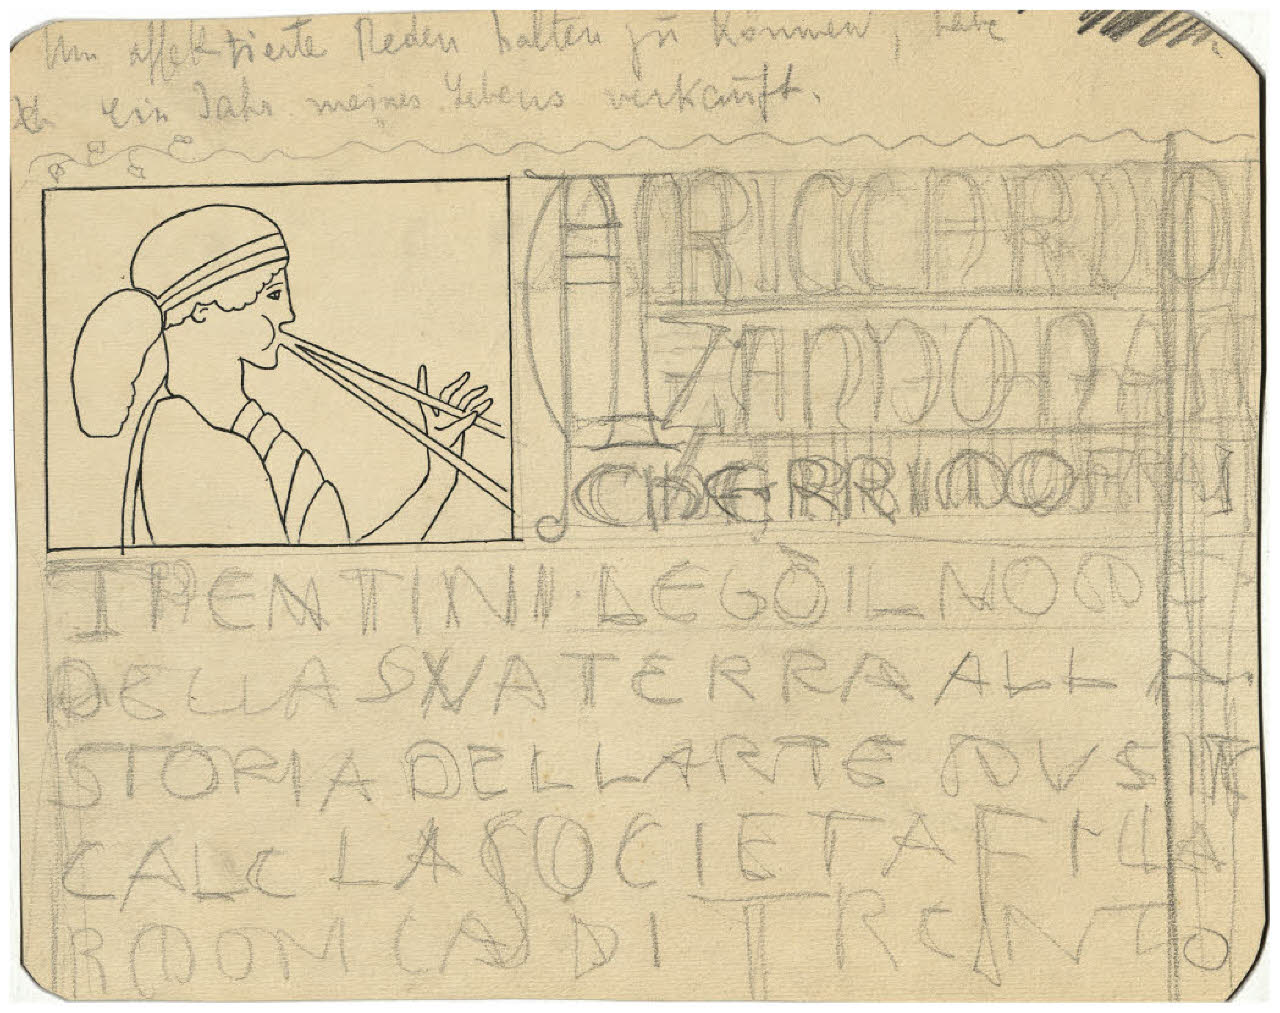 Um affektierte Reden halten zu können, habe
Ich ein Jahr meines Lebens verkauft.
A RICCARDO
ZANDONAI
CHE
TRENTINI LEGÒ IL NOME
DELLA SVA TERRA ALLA
STORIA DELL ARTE MVSI
CALE LA SOCIETA FILA
RMONICA DI TRENTO